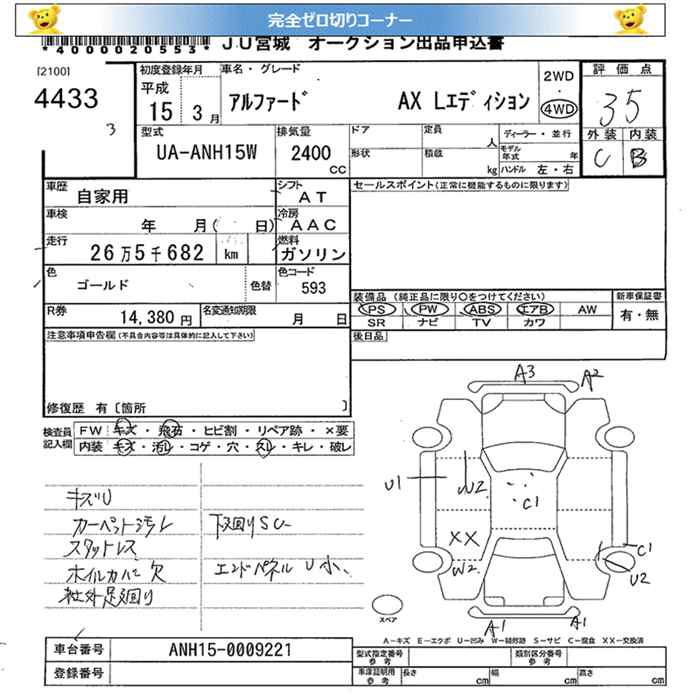 完全ゼロ切りコーナー
*4000020553*
JU宮城 オークション出品申込書
[2100]
4433
3
初度登録年月
平成
15 3月
車名・グレード
アルファード AX Lエディション
2WD
・
4WD
評価点
3.5
外装 内装
C B
型式
UA-ANH15W
排気量
2400
CC
ドア
形状
定員
人
積載
kg
ディーラー・並行
モデル年式 年
ハンドル 左・右
車歴
自家用
シフト
AT
セールスポイント(正常に機能するものに限ります)
車検
年 月( 日)
冷房
AAC
走行
26万5千682 km
燃料
ガソリン
色
ゴールド
色替
色コード
593
装備品(純正品に限り○をつけてください)
PS PW ABS エアB AW
SR ナビ TV カワ
新車保証書
有・無
R券
14,380円
名変通知期限
月 日
注意事項申告欄(不具合内容等は具体的に記入して下さい)
後日品
修復歴 有〔箇所 〕
検査員記入欄
FW キズ・飛石・ヒビ割・リペア跡・×要
内装 キズ・汚れ・コゲ・穴・スレ・キレ・破レ
キズU
カーペット汚レ
下廻りSC
スタットレス
ホイルカバー欠
エンドパネルU小、
社外足廻り
A3
A2
U1
W2
C1
XX
W2
C1
U2
A1
A1
スペア
A-キズ E-エクボ U-凹み W-補修跡 S-サビ C-腐食 XX-交換済
車台番号
ANH15-0009221
登録番号
型式指定番号
参考
類別区分番号
参考
車庫証明用
参考
長さ cm 幅 cm 高さ cm